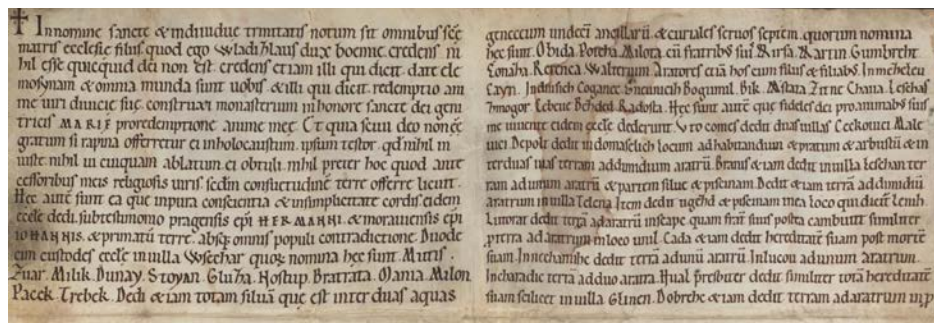 In nomine sancte & individue trinitatis notum sit omnibus scē
matris ecclesie filiis. quod ego Wladizlaus dux boemie. credens ni
hil esse quicquid dei non est. credens etiam illi qui dicit. date ele
mosynam & omnia munda sunt uobis. & illi qui dicit. redemptio ani
me uiri diuicie sue. construxi monasterium in honore sancte dei geni
tricis MARIE pro redemptione anime mee. Et quia sciui deo non eē
gratum si rapina offerretur ei in holocaustum. ipsum testor. qd nihil in
iuste. nihil ui cuiquam ablatum ei obtuli. nihil preter hoc quod ante
cessoribus meis religiosis uiris sedin consuetudinē terre offerre licuit.
Hec autē sunt ea que in pura conscientia & in simplicitate cordis eidem
eccle dedi. sub testimonio pragensis epi HERMANNI. & morauiensis epi
IOHANNIS. & primatū terre. absq; omnis populi contradictione. Duode
cim custodes eccle in uilla Wsechar quoq; nomina hec sunt. Mutis.
Zuar. Milik. Dunay. Stoyan. Gluha. Hostup. Bratrata. Mania. Milon
Pacek. Trebek. Dedi & iam totam siluā que est inter duas aquas
geneceum undecī ancillarū. & curiales seruos septem. quorum nomina
hec sunt. Obida. Poteha. Milota. cū fratribus suis. Kirsa. Martin. Gumbreht
Lonaha. Retenca. Walterum. Aratores etiā hos cum filiis & filiabus. In meheleu
Cayn. Indrisseh. Coganec. Bogumil. Bik. Mstata. Zitne. Chana. Leschas
Inmogor. Lebeuc. Behded. Radosta. Hec sunt autē que fideles dei pro animabus suis
me uiuente eidem eccle dederunt. Vro comes dedit duas uillas Ceckouici. Male
uici. Depolt dedit in domaselich locum ad habitandum & pratum & arbustū & in
ter duas uias terram ad dimidium aratrū. Branis & iam dedit in uilla Leschan ter
ram ad unum aratrū & partem silue & piscinam. Dedit & iam terrā ad dimidiū
aratrum in uilla Telena. Item dedit ugezd & piscinam in ea loco qui dicit Lemh.
Lutorat dedit terrā ad aratrū in scape. quam frat̄ suus postea cambiuit similiter
p terra ad aratrum in loco unil. Cada & iam dedit hereditatē suam post mortē
suam. In nechanihe dedit terrā ad unū aratrū. In lucou ad unum aratrum.
In charadic terrā ad duo aratra. Hual presbiter dedit similiter totā hereditatē
suam scilicet in uilla Glinen. Dobrehc & iam dedit terram ad aratrum in p